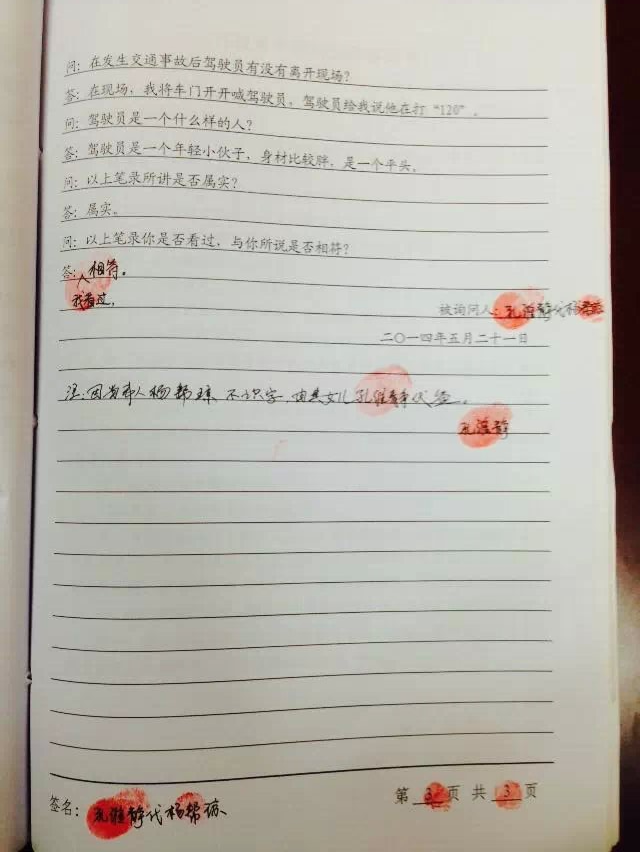 问：在发生交通事故后驾驶员有没有离开现场？
答：在现场，我将车门开开喊驾驶员，驾驶员给我说他在打“120”。
问：驾驶员是一个什么样的人？
答：驾驶员是一个年轻小伙子，身材比较胖，是一个平头。
问：以上笔录所讲是否属实？
答：属实。
问：以上笔录你是否看过，与你所说是否相符？
答：相符。
我看过，
被询问人：孔维静代杨帮琼
二〇一四年五月二十一日
注：因当事人杨帮琼不识字，由其女儿孔维静代签。
孔维静
签名：孔维静代杨帮琼
第 3 页 共 3 页